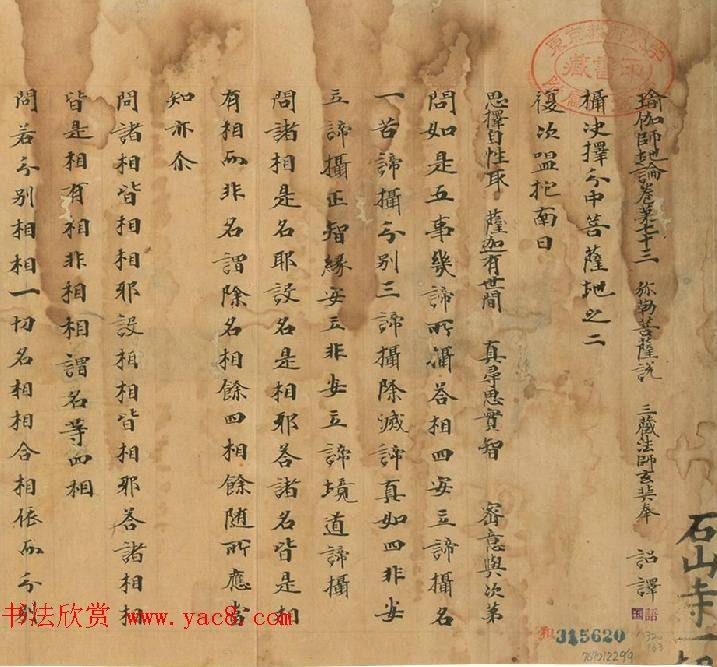 瑜伽師地論卷第七十三 弥勒菩薩説 三藏法師玄奘奉 詔譯
攝決擇分中菩薩地之二
復次嗢柁南曰
思擇自性取 薩迦有世間 真尋思實智 密意與次第
問如是五事幾諦所攝荅相四安立諦攝名
一苦諦攝分別三諦攝除滅諦真如四非安
立諦攝正智緣安立非安立諦境道諦攝
問諸相是名耶設名是相耶荅諸名皆是相
有相而非名謂除名相餘四相餘随所應當
知亦尒
問諸相皆相相耶設相相皆相耶荅諸相相
皆是相有相非相相謂名等四相
問若分別相相一切名相相合相依而分別
石山寺一切
藏書印
315620
769012299
书法欣赏 www.yac8.com